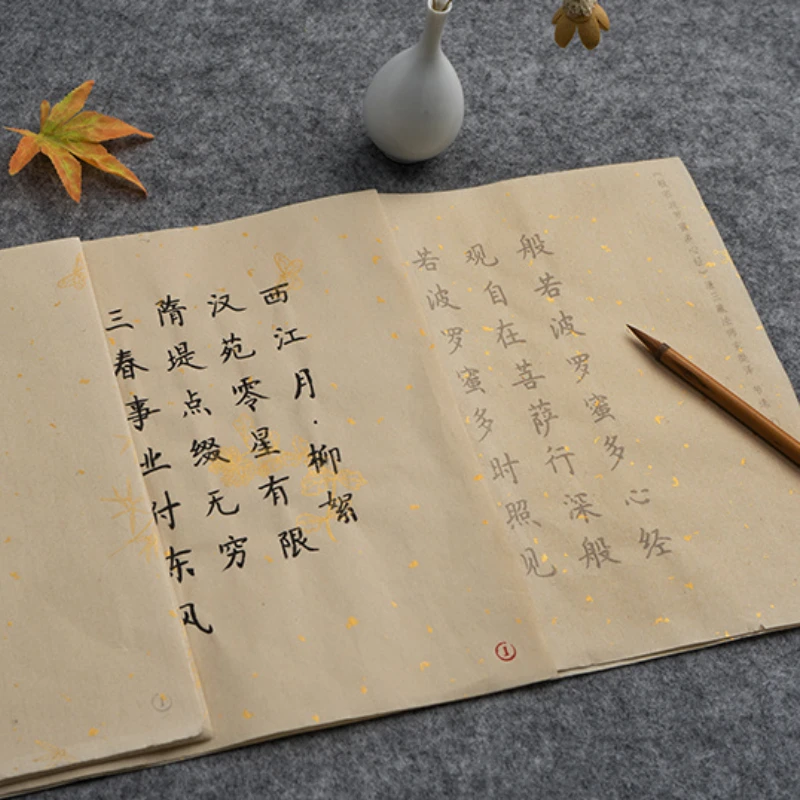 般若波罗蜜多心经
观自在菩萨行深般
若波罗蜜多时照见
西江月·柳絮
汉苑零星有限
隋堤点缀无穷
三春事业付东风
①
①